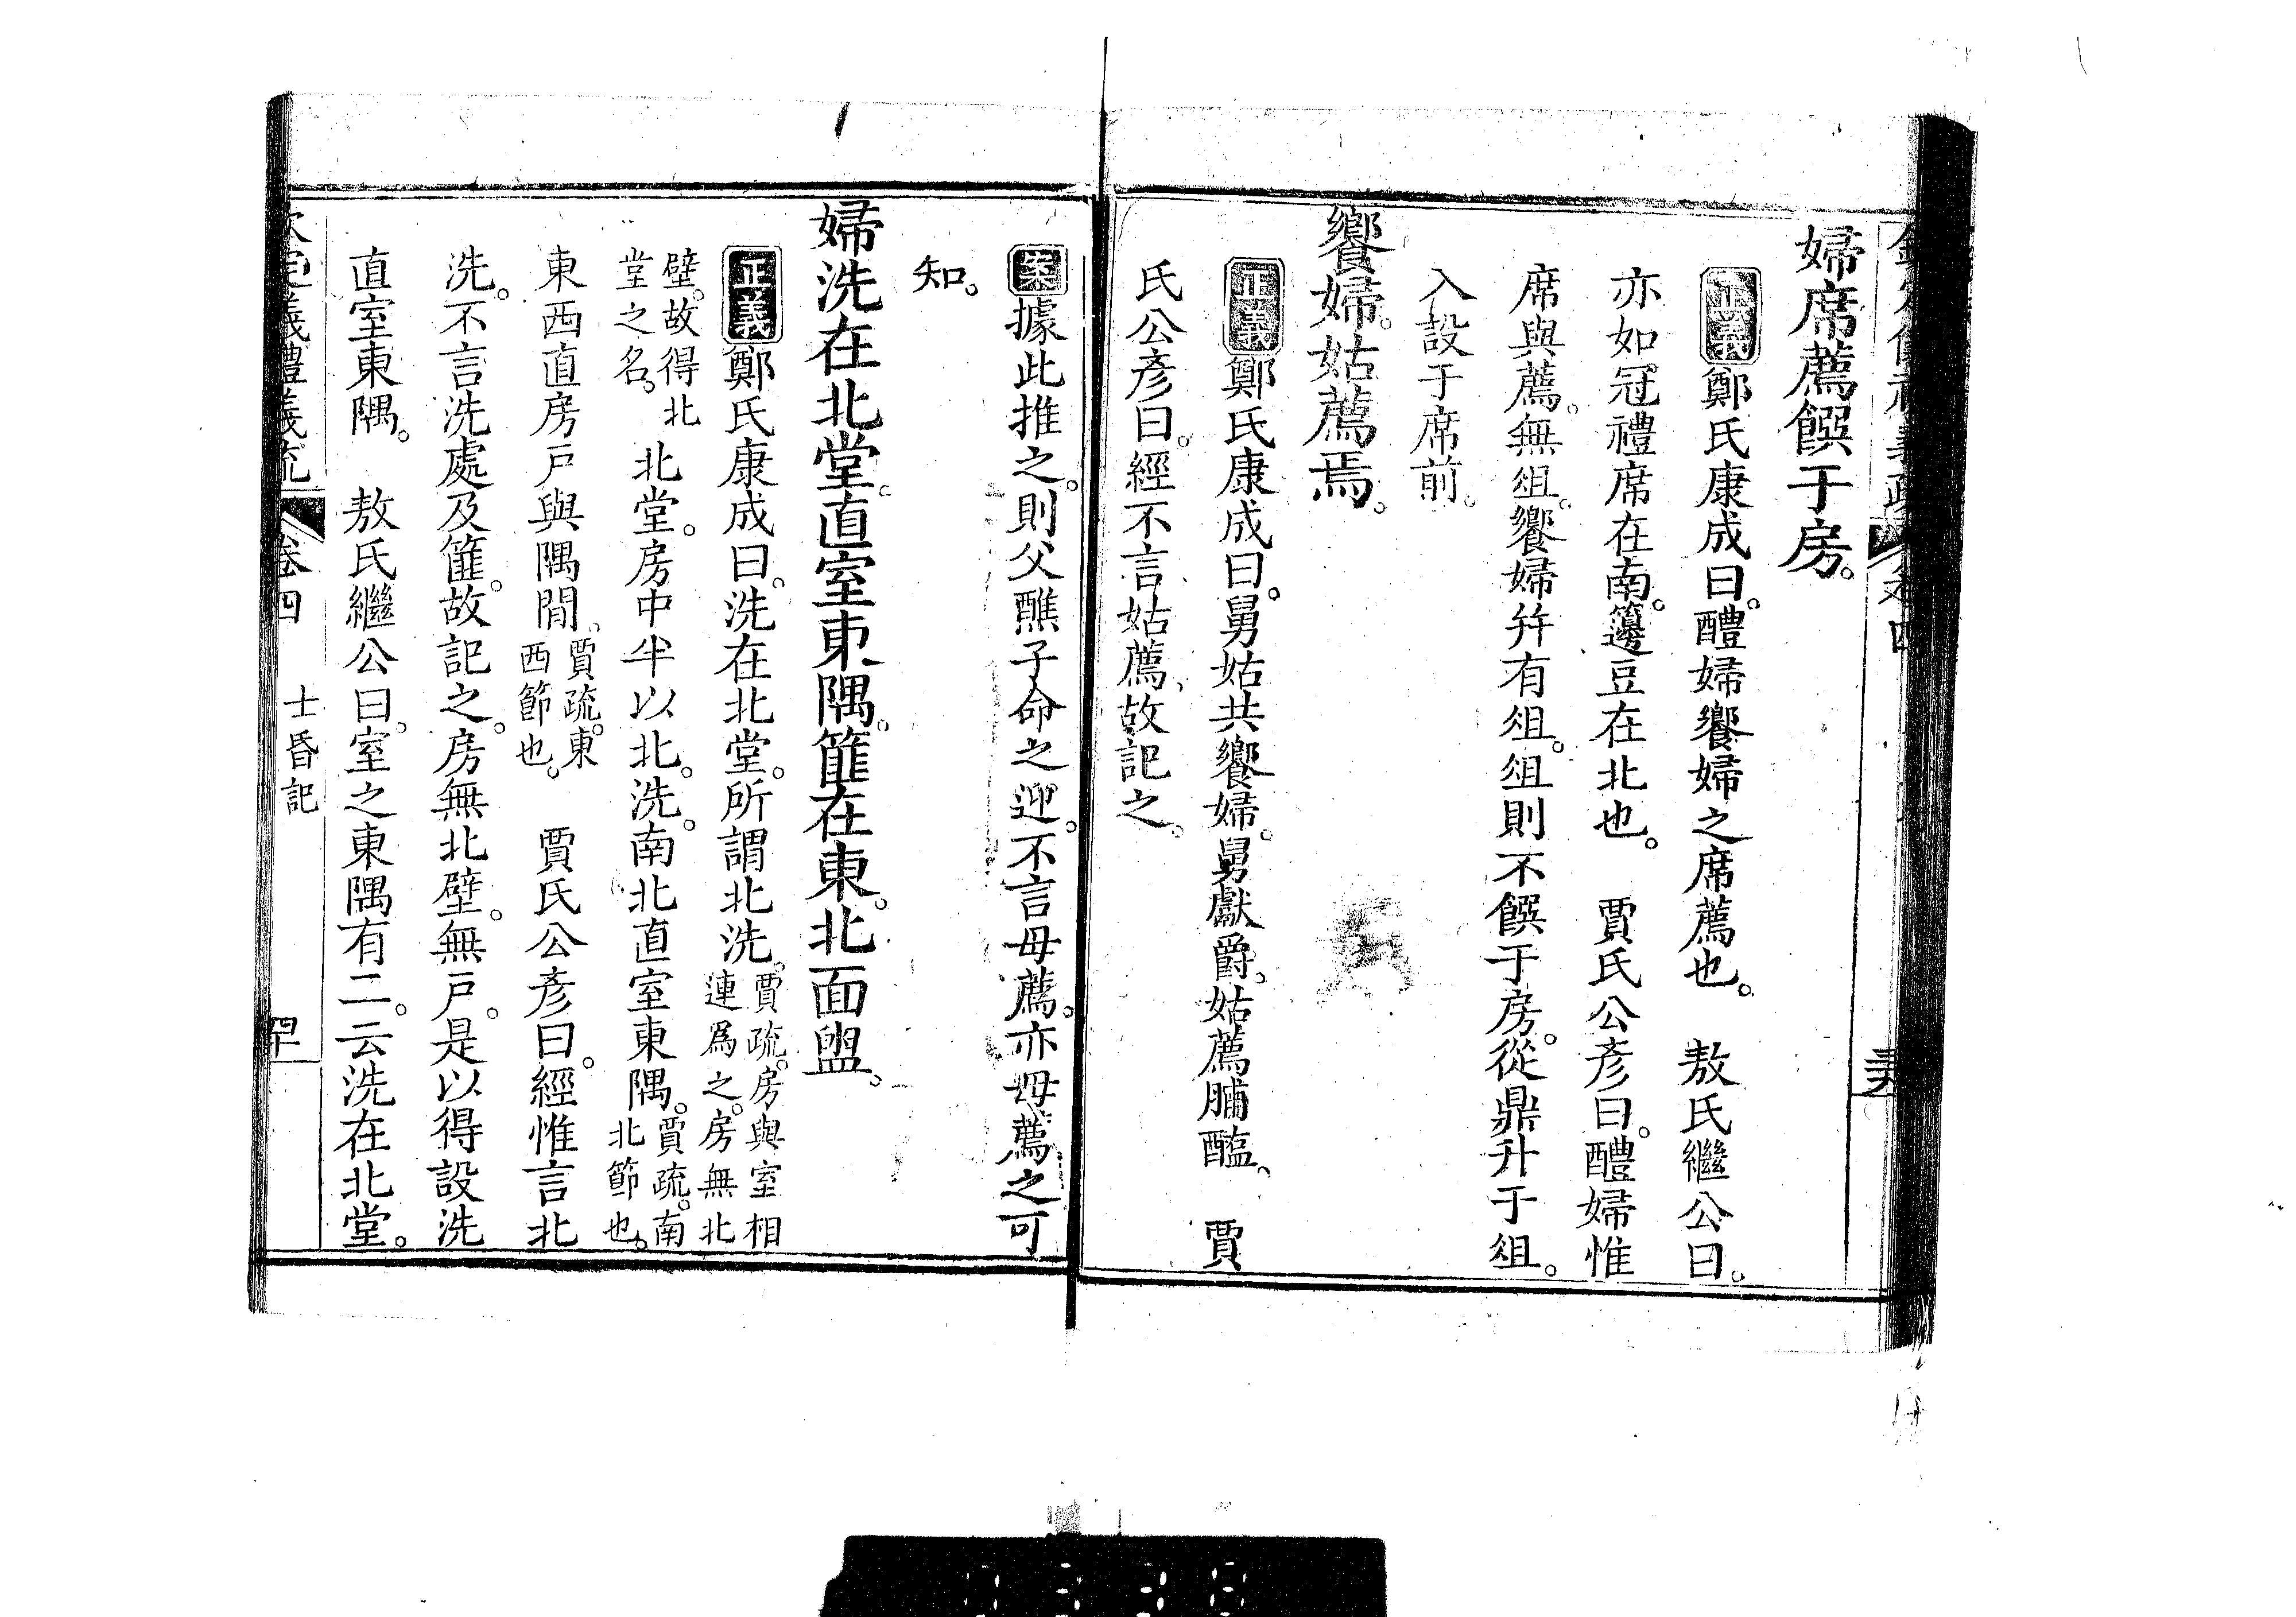 婦席薦饌于房。
正義鄭氏康成曰。醴婦饗婦之席薦也。　敖氏繼公曰。
亦如冠禮席在南。籩豆在北也。　賈氏公彥曰。醴婦惟
席與薦。無俎。饗婦幷有俎。俎則不饌于房。從鼎升于俎。
入設于席前。
饗婦。姑薦焉。
正義鄭氏康成曰。舅姑共饗婦。舅獻爵。姑薦脯醢、　賈
氏公彥曰。經不言姑薦、故記之。
案據此推之。則父醮子命之迎。不言母薦。亦母薦之可
知。
婦洗在北堂。直室東隅。篚在東。北面盥。
正義鄭氏康成曰。洗在北堂。所謂北洗。賈疏。房與室相
連爲之。房無北
壁。故得北
堂之名。　北堂。房中半以北。洗。南北直室東隅。賈疏。南
北節也。
東西直房戶與隅間。賈疏。東
西節也。　賈氏公彥曰。經惟言北
洗。不言洗處及篚。故記之。房無北壁。無戶。是以得設洗
直室東隅。　敖氏繼公曰。室之東隅有二。云洗在北堂。
義禮義疏　卷四　士昏記